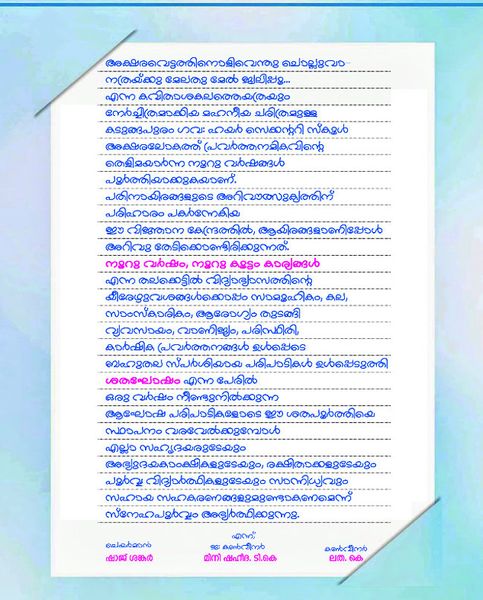 അക്ഷരവെട്ടത്തിനൊളിവെന്തു ചൊല്ലുവാ
നത്രയ്ക്കു മേലതു മേൽ ജ്വലിപ്പൂ...
എന്ന കവിതാശകലത്തെയത്രയും
നേർച്ചിത്രമാക്കിയ മഹനീയ ചരിത്രമുള്ള
കടുങ്ങപുരം ഗവ: ഹയർ സെക്കന്ററി സ്കൂൾ
അക്ഷരലോകത്ത് പ്രവർത്തനമികവിന്റെ
തെളിമയാർന്ന നൂറു വർഷങ്ങൾ
പൂർത്തിയാക്കുകയാണ്.
പതിനായിരങ്ങളുടെ അറിവാത്സുക്യത്തിന്
പരിഹാരം പകർന്നേകിയ
ഈ വിജ്ഞാന കേന്ദ്രത്തിൽ, ആയിരങ്ങളാണിപ്പോൾ
അറിവു തേടിക്കൊണ്ടിരിക്കുന്നത്.
നൂറു വർഷം, നൂറു കൂട്ടം കാര്യങ്ങൾ
എന്ന തലക്കെട്ടിൽ വിദ്യാഭ്യാസത്തിന്റെ
കീഴേഴുവശങ്ങൾക്കൊപ്പം സാമൂഹികം, കല,
സാംസ്കാരികം, ആരോഗ്യം തുടങ്ങി
വ്യവസായം, വാണിജ്യം, പരിസ്ഥിതി,
കാർഷിക പ്രവർത്തനങ്ങൾ ഉൾപ്പെടെ
ബഹുതല സ്പർശിയായ പരിപാടികൾ ഉൾപ്പെടുത്തി
ശതഘോഷം എന്ന പേരിൽ
ഒരു വർഷം നീണ്ടുനിൽക്കുന്ന
ആഘോഷ പരിപാടികളോടെ ഈ ശതപൂർത്തിയെ
സ്ഥാപനം വരവേൽക്കുമ്പോൾ
എല്ലാ സഹൃദയരുടേയും
അഭ്യുദയകാംക്ഷികളുടേയും, രക്ഷിതാക്കളുടേയും
പൂർവ്വ വിദ്യാർത്ഥികളുടേയും സാന്നിധ്യവും
സഹായ സഹകരണങ്ങളുമുണ്ടാകണമെന്ന്
സ്നേഹപൂർവ്വം അഭ്യർത്ഥിക്കുന്നു.
എന്ന്,
ചെയർമാൻ കൺവീനർ കൺവീനർ
ഷാജ് ശങ്കർ മിനി ഷഹീദ. ടി.കെ ലത. കെ